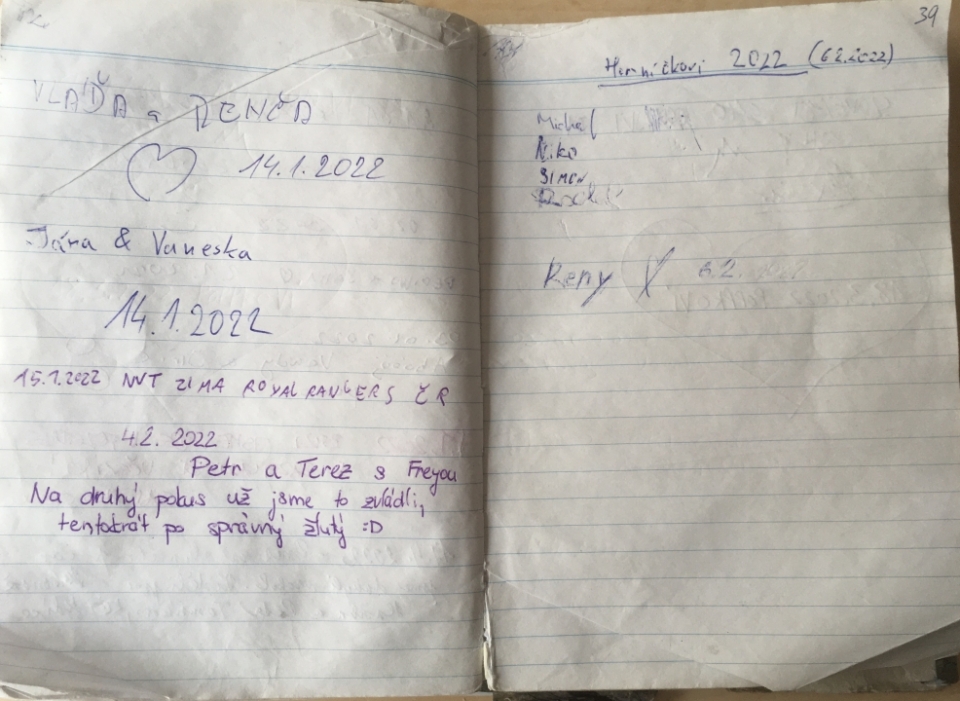 VLAĎA a RENČA
14.1.2022
Jára & Vaneska
14.1.2022
15.1.2022 NVT ZIMA ROYAL RANGERS ČR
4.2. 2022
Petr a Terez s Freyou
Na druhý pokus už jsme to zvládli,
tentokrát po správný žlutý :D
39
2022 (6.2.2022)
Michal
Niko
SIMEN
Reny 6.2. 2022